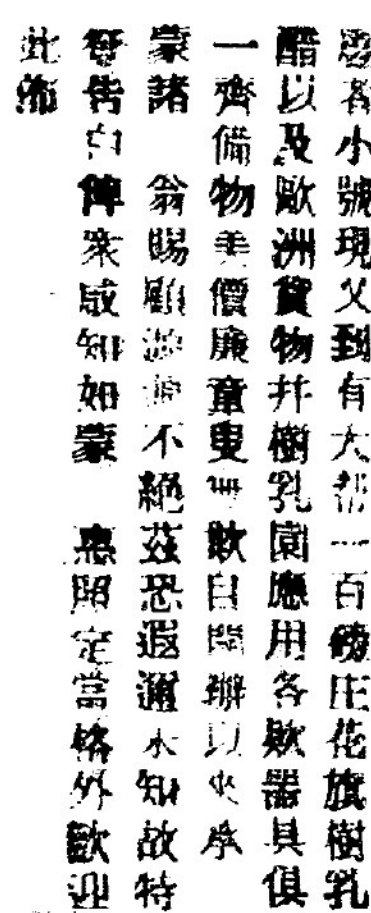 啓者小號現又到有大帮一百磅庄花旗樹乳
醋以及歐洲貨物并樹乳園應用各欵器具俱
一齊備物美價廉童叟無欺自開辦以來承
蒙諸 翁賜顧源源不絕茲恐遐邇未知故特
登告白俾衆咸知如蒙 惠照定當格外歡迎
此佈